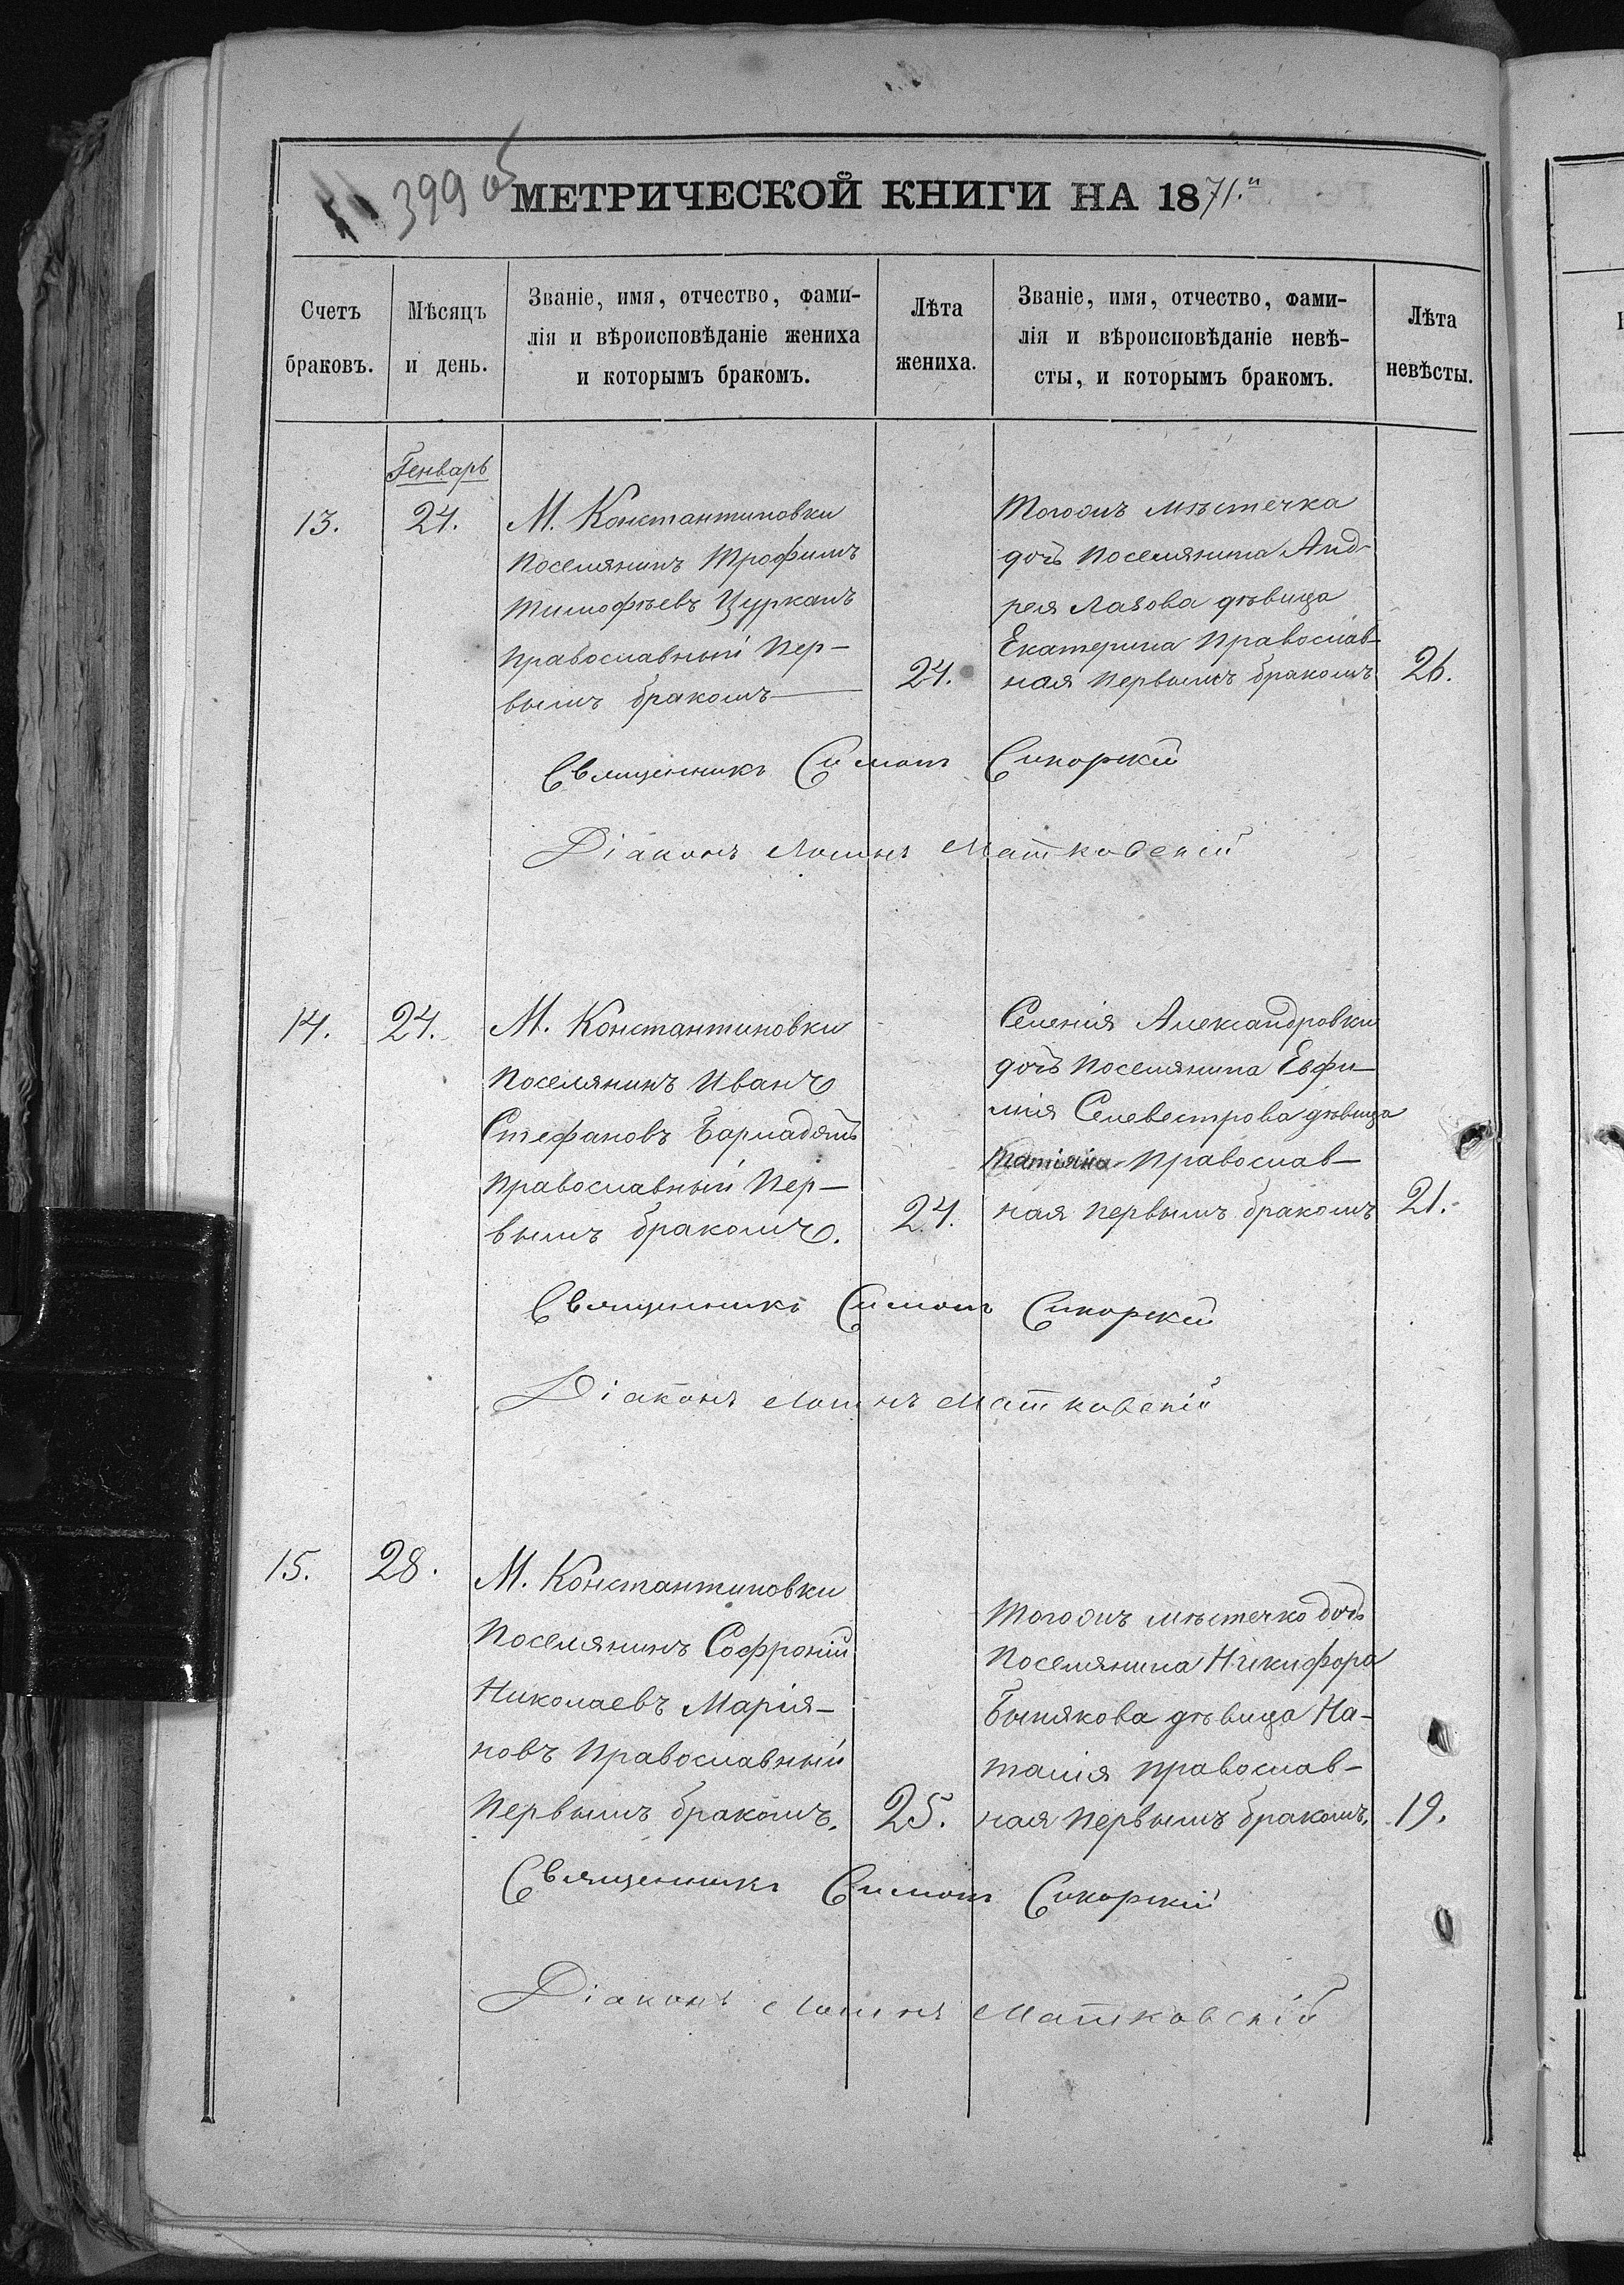 399 об
МЕТРИЧЕСКОЙ КНИГИ НА 1871.й
Счетъ браковъ.
Мѣсяцъ и день.
Званіе, имя, отчество, фами-
лія и вѣроисповѣданіе жениха
и которымъ бракомъ.
Лѣта жениха.
Званіе, имя, отчество, фами-
лія и вѣроисповѣданіе невѣ-
сты, и которымъ бракомъ.
Лѣта невѣсты.
Генварь
13.
24.
М. Константиновки
поселянинъ Трофимъ
Тимофѣевъ Цурканъ
Православный Пер-
вымъ бракомъ
24.
Тогожъ мѣстечка
дочь поселянина Анд-
рея Лазова дѣвица
Екатерина Православ-
ная первымъ бракомъ
26.
Священникъ Симонъ Сикорскій
Діаконъ Логинъ Матковскій
14.
24.
М. Константиновки
поселянинъ Иванъ
Стефановъ
Православный Пер-
вымъ бракомъ.
24.
Селенія Александровки
дочь поселянина Евфи-
мія Селевестрова дѣвица
Татіяна Православ-
ная первымъ бракомъ
21.
Священникъ Симонъ Сикорскій
Діаконъ Логинъ Матковскій
15.
28.
М. Константиновки
Поселянинъ Софроній
Николаевъ Марія-
новъ Православный
Первымъ бракомъ.
25.
Тогожъ мѣстечко дочь
Поселянина Никифора
дѣвица На-
талія православ-
ная первымъ бракомъ.
19.
Священникъ Симонъ Сикорскій
Діаконъ Логинъ Матковскій